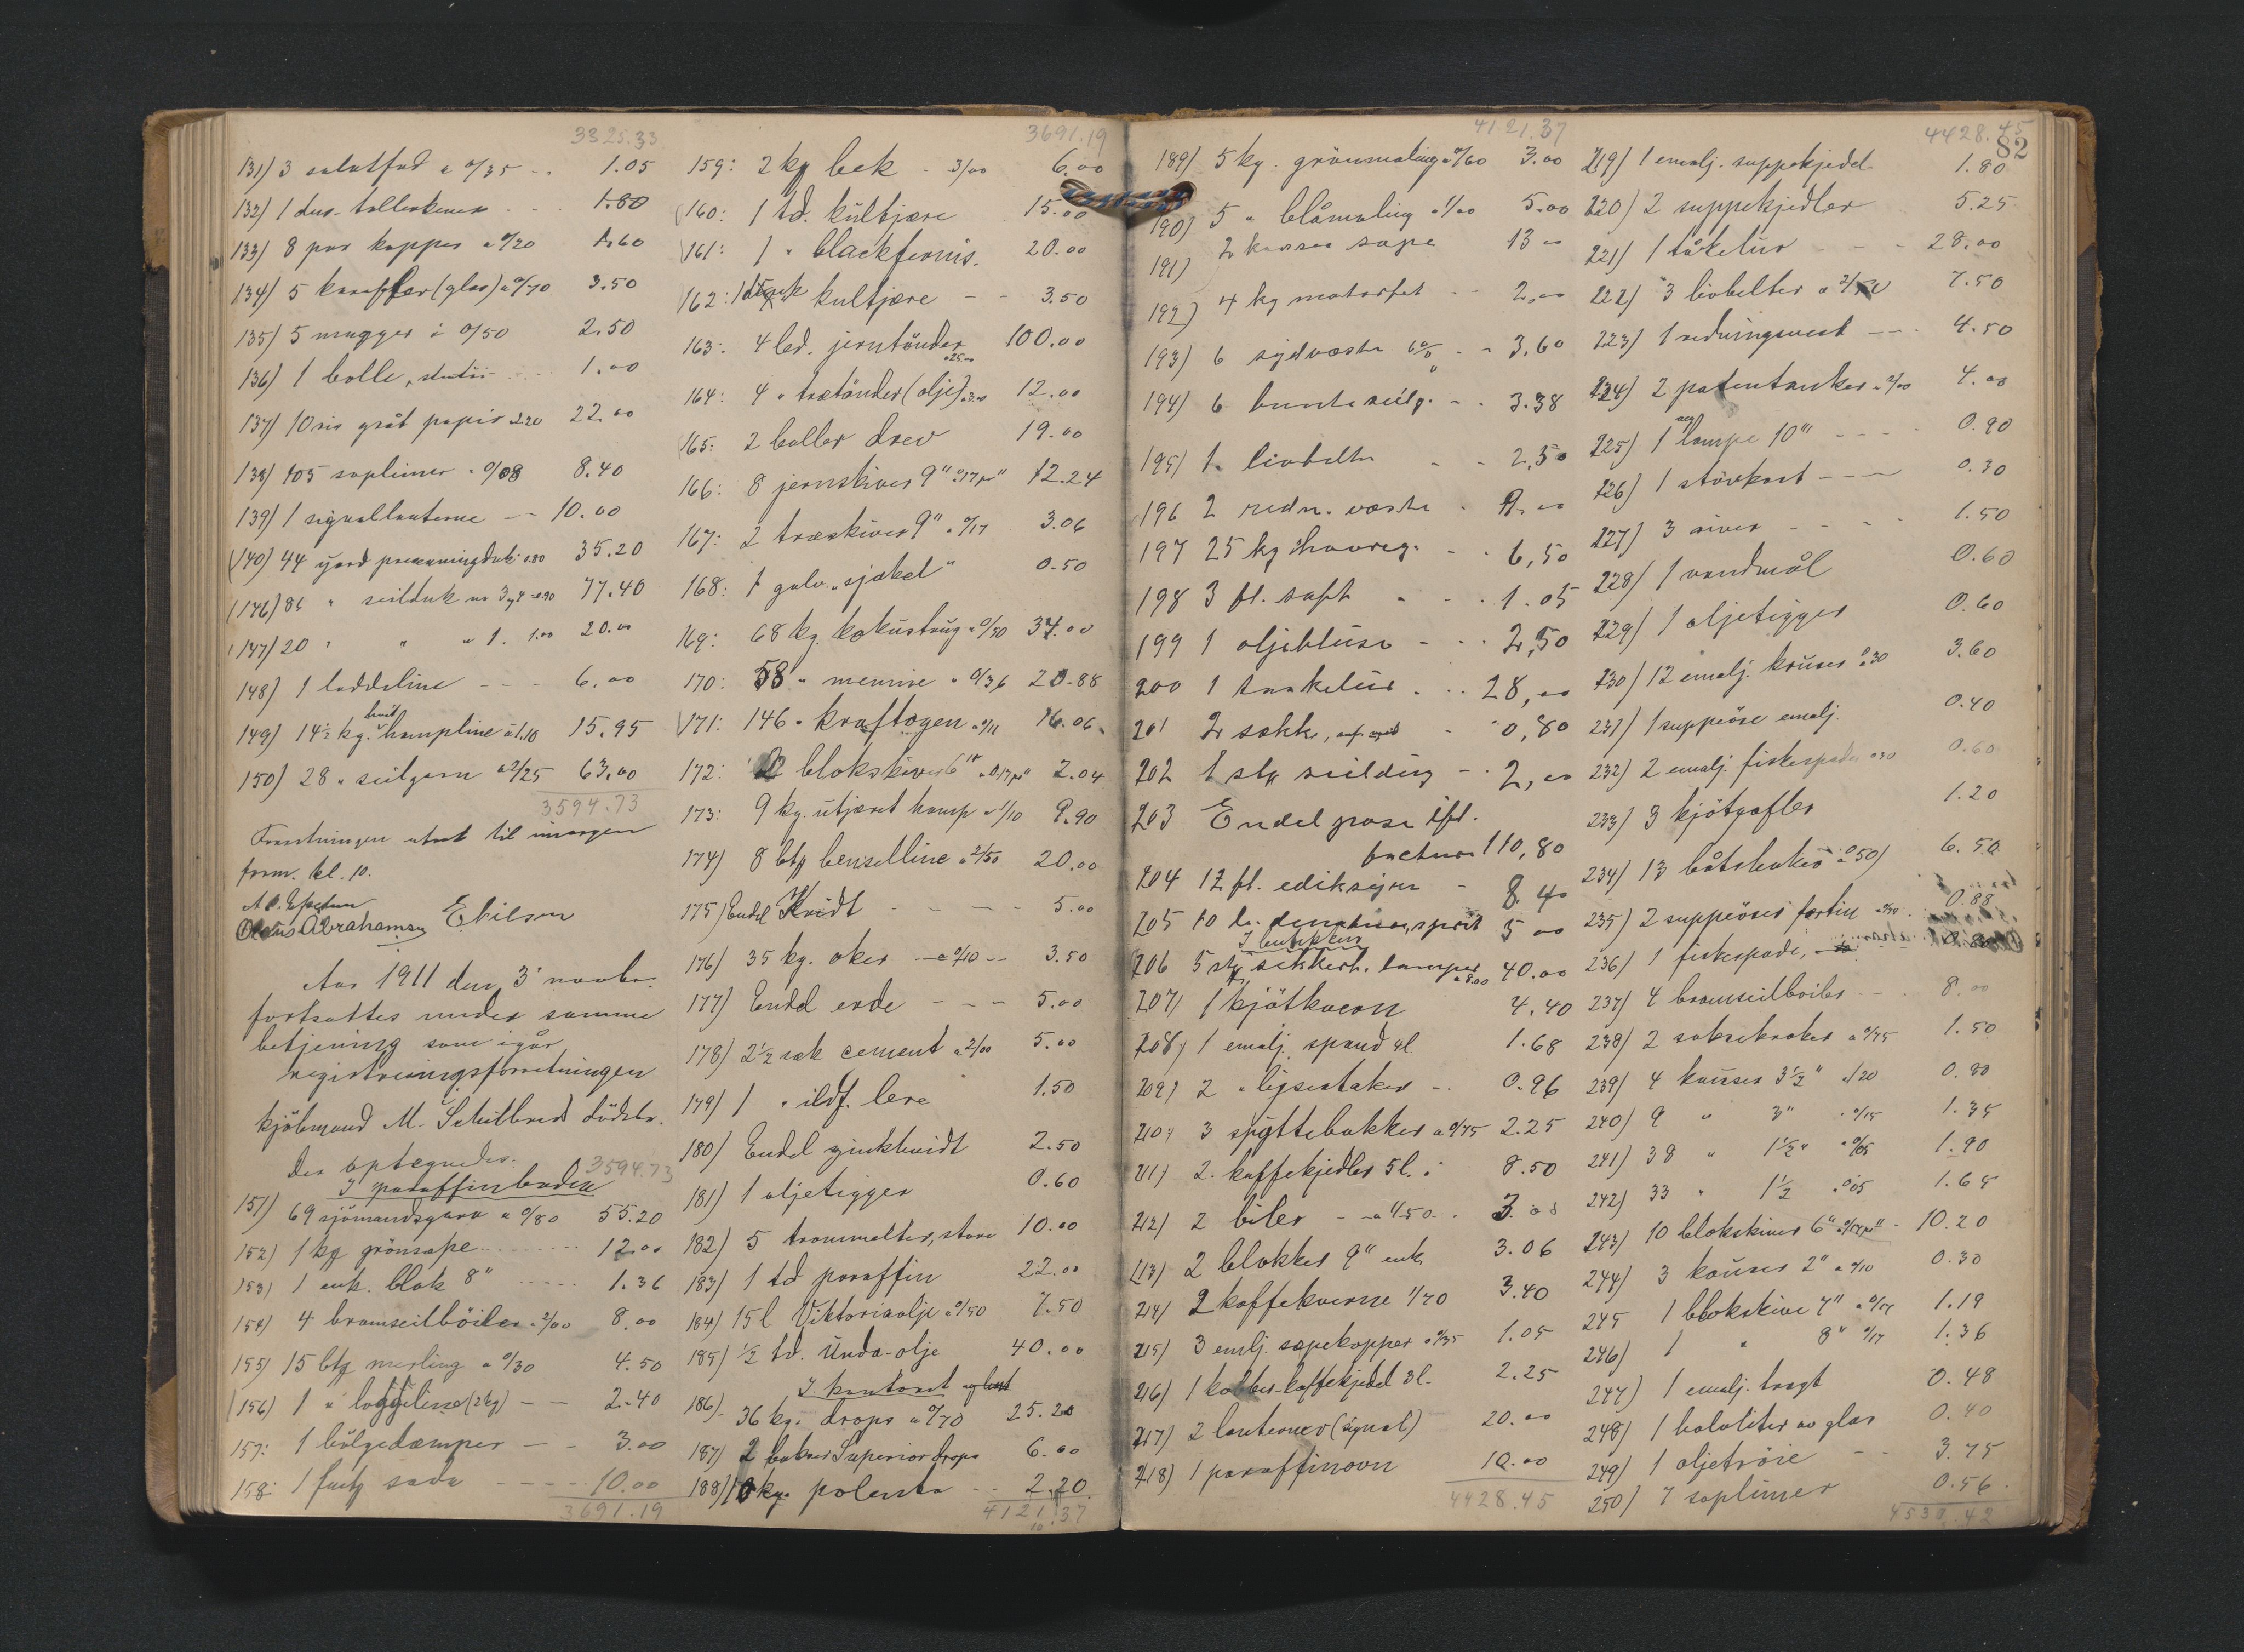 3325.33
131) 3 salatfad a 0/35 - . 1.05
132) 1 dus. tallerkener . - . 1.80
133) 8 par kopper a 0/20 1.60
134) 5 karafler (glas) a 0/70 3.50
135) 5 mugger à 0/50 2.50
136) 1 bolle, 1.00
137) 10 ris gråt papir 2.20 22.00
138) 105 soplimer . 0/08 8.40
139) 1 signallanterne - - 10.00
140) 44 yard presenningduk 0.80 35.20
146) 86 " seilduk no 3 & 4 0.90 77.40
147) 20 " " " 1. 1.00 20.00
148) 1 loddeline - - - 6.00
149) 14½ kg. hvit hampline à 1.10 15.95
150) 28 " seilgarn a 2/25 63.00
3594.73
Forretningen utsat til imorgen
form. kl. 10.
Olaus Abrahamsen
Aar 1911 den 3 novbr.
fortsattes under samme
betjening som igår
registreringsforretningen
kjöbmand M. Schilbreds dödsbo.
Der optegnedes:
3594.73
I paraffinboden
151) 69 sjömandsgarn a 0/80 55.20
152) 1 kg grönsape 12.00
153) 1 enk. blok 8" 1.36
154) 4 bramseilböiler a 2/00 8.00
155) 15 btg merling a 0/30 4.50
156) 1 " loggeline (2kg) - - 2.40
157: 1 bölgedæmper - - 3.00
158: 1 fustg soda - - - 10.00
3691.19
3691.19
159: 2 kg bek - 3/00 6.00
160: 1 td. kultjære 15.00
161: 1 " blackfernis. 20.00
162: 1 kultjære - - 3.50
163: 4 led. jerntönder a 25.00 100.00
164: 4 " trætönder (olje) a 3.00 12.00
165: 2 baller drev 19.00
166: 8 jernskiver 9" a 0.17 pr " 12.24
167: 2 træskiver 9" a 0/17 3.06
168: 1 galv. "sjækel" 0.50
169: 68 kg. kokustaug a 0/50 34.00
170: 58 " mennie a 0/36 20.88
171: 146 " kraftogen a 0/11 16.06
172: 2 blokskiver 6" a 0.17 pr" 2.04
173: 9 kg. utjæret hamp a 1/10 9.90
174) 8 btg benselline a 2/50 20.00
175) Endel Kridt - - - - 5.00
176) 35 kg. oker - a 0/10 - - 3.50
177) Endel erde - - - 5.00
178) 2½ sæk cement a 2/00 5.00
179) 1 " ildf. lere 1.50
180) Endel zinkhvidt 2.50
181) 1 oljetigger 0.60
182) 5 trommelter, store 10.00
183) 1 td paraffin 22.00
184) 15 l Viktoriaolje a 0/50 7.50
185) ½ td. Unda-olje 40.00
I kontoret
186) 36 kg. drops a 0/70 25.20
187) 2 bokser Superior drops 6.00
188) 10 kg. polenta - - 2.20
4121.37
4121.37
189) 5 kg. grönmaling a 0/60 3.00
190) 5 " blåmaling a 1/00 5.00
191) 2 kasser sape 13.00
192) 4 kg motorfet - - 2.00
193) 6 sydvæste 60/0 - - 3.60
194) 6 bunte seilg. - . 3.38
195) 1. livbelte - - 2,50
196 2 redn. væste . 9.00
197 25 kg havreg. - . 6,50
198 3 fl. saft . - . 1.05
199 1 oljebluse - - . 2,50
200 1 taakelur . . . 28,00
201 2 sække, - 0,80
202 1 stk seildug - . 2,00
203 Endel pose ifl.
factura 110,80
204 12 fl. ediksyre - 8 40
205 10 l. denatur. sprit 5 00
I butikken
206 5 stk sikkerh. lamper a 8.00 40.00
207) 1 kjötkvern 4.40
208) 1 emalj. spand 4l. 1.68
209) 2 " lysestaker - . 0.96
210) 3 spyttebakker a 0/75 2.25
211) 2. kaffekjedler 5 l. 8.50
212) 2 biler - - a 1/50 . 3.00
213) 2 blokker 9" enk. 3.06
214) 2 kaffekverne 1/70 3.40
215) 3 emlj. sapekopper a 0/35 1.05
216) 1 kobber-kaffekjedel 3 l. 2.25
217) 2 lanterner (signal) 20.00
218) 1 paraffinovn 10.00
4428.45
4428.45
82
219) 1 emalj. suppekjedel 1.80
220) 2 suppekjedler 5.25
221) 1 tåkelur - - - 28.00
222) 3 livbelter a 2/50 7.50
223) 1 redningsvest - - . 4.50
224) 2 patentanker a 2/00 4.00
225) 1 lampe 10''' - - - - 0.90
226) 1 stövkost - - - 0.30
227) 3 river - - - - 1.50
228) 1 vandmål 0.60
229) 1 oljetigger 0.60
230) 12 emalj. kruser a 0.30 3.60
231) 1 suppeöse emalj. 0.40
232) 2 emalj. fiskespader a 30 0.60
233) 3 kjötgafler 1.20
234) 13 båtshaker a 0.50) 6.50
235) 2 suppeöser fortin 0.88
236) 1 fiskespade,
237) 4 bramseilboiler - - . 8.00
238) 2 saksekroker a 0/75 1.50
239) 4 kauser 3½" a /20 0.80
240) 9 " 3" a 0/15 1.35
241) 38 " 1½" a 0/05 1.90
242) 33 " 1½ a 0/05 1.65
243) 10 blokskiver 6" a 0/17 pr" - 10.20
244) 3 kauser 2" a 0/10 0.30
245 1 blokskive 7" a 0/17 1.19
246) 1 " 8" 0/17 1.36
247) 1 emalj. tragt 0.48
248) 1 halvliter av glas 0.40
249) 1 oljetröie - - 3.75
250) 7 soplimer 0.56